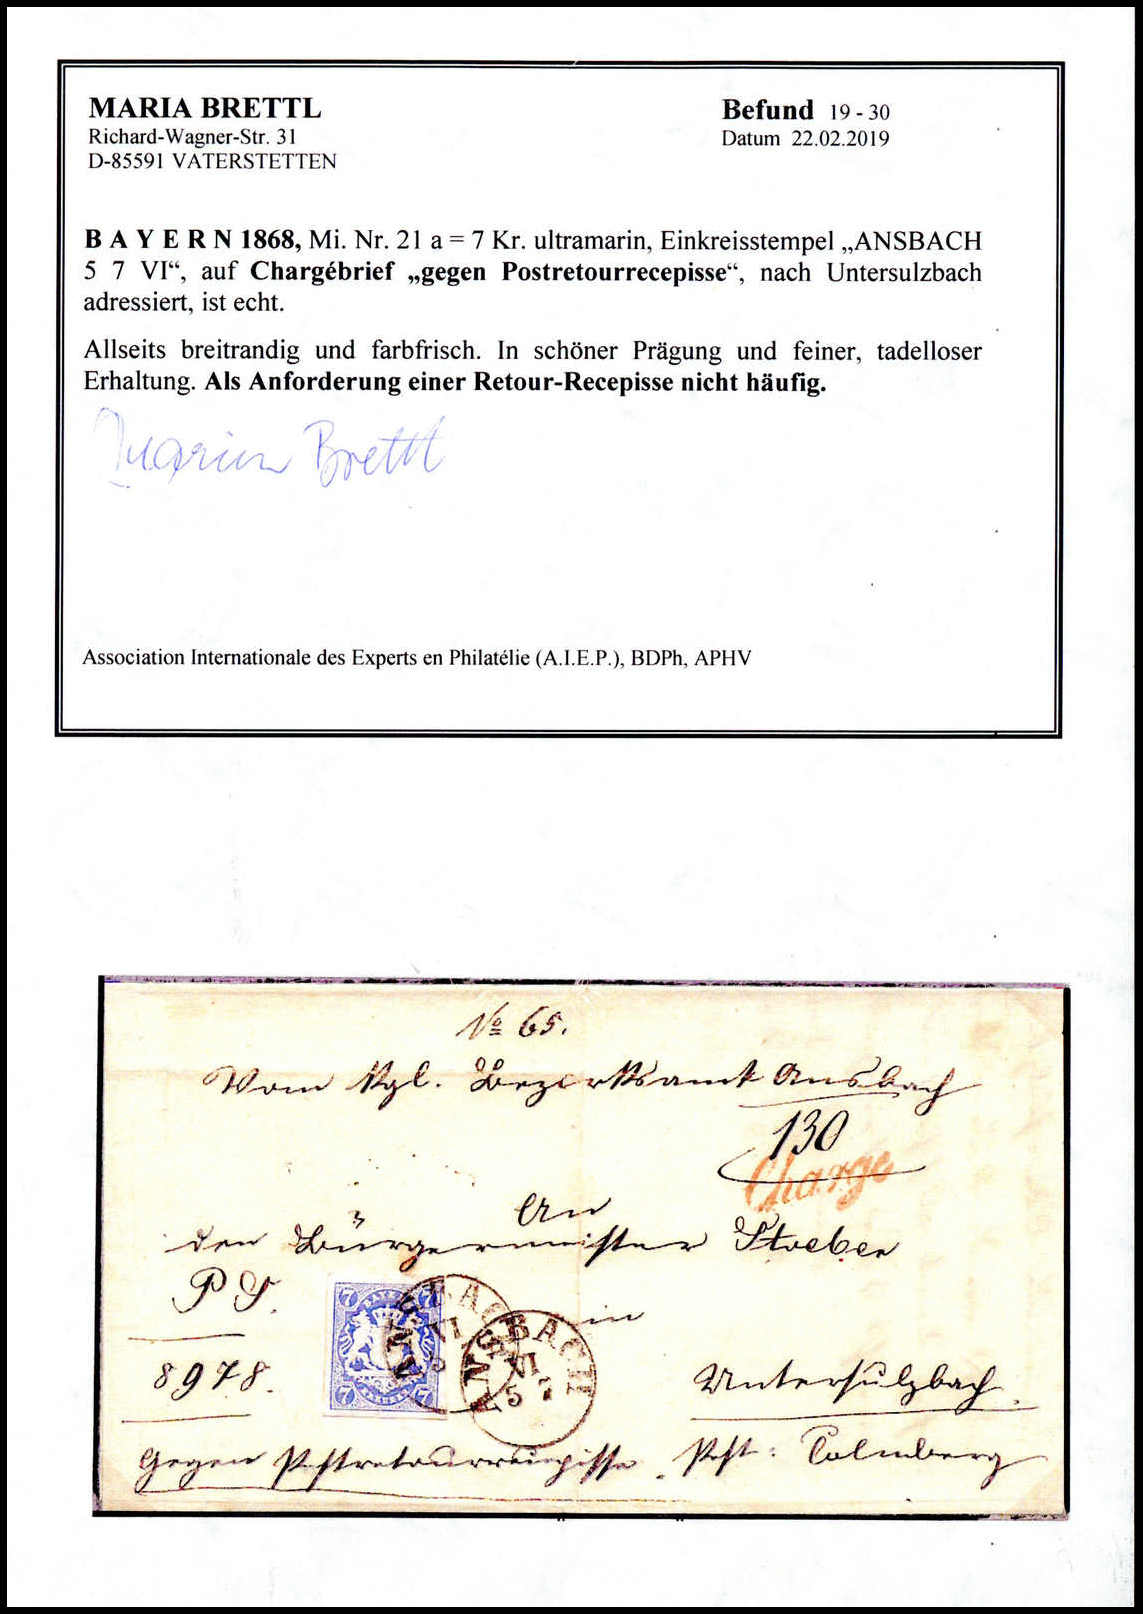 MARIA BRETTL
Richard-Wagner-Str. 31
D-85591 VATERSTETTEN
Befund 19 - 30
Datum 22.02.2019
B A Y E R N 1868, Mi. Nr. 21 a = 7 Kr. ultramarin, Einkreisstempel „ANSBACH
5 7 VI“, auf Chargébrief „gegen Postretourrecepisse“, nach Untersulzbach
adressiert, ist echt.
Allseits breitrandig und farbfrisch. In schöner Prägung und feiner, tadelloser
Erhaltung. Als Anforderung einer Retour-Recepisse nicht häufig.
Maria Brettl
Association Internationale des Experts en Philatélie (A.I.E.P.), BDPh, APHV
No 65.
Vom Kgl. Bezirksamt Ansbach
130
Charge
An
den Bürgermeister Stoeber
P S.
7 7
ANSBACH
VI
5
in
ANSBACH
VI
5 7
8978.
7 7
Untersulzbach.
Gegen Postretourrecepisse. Post: Colmberg